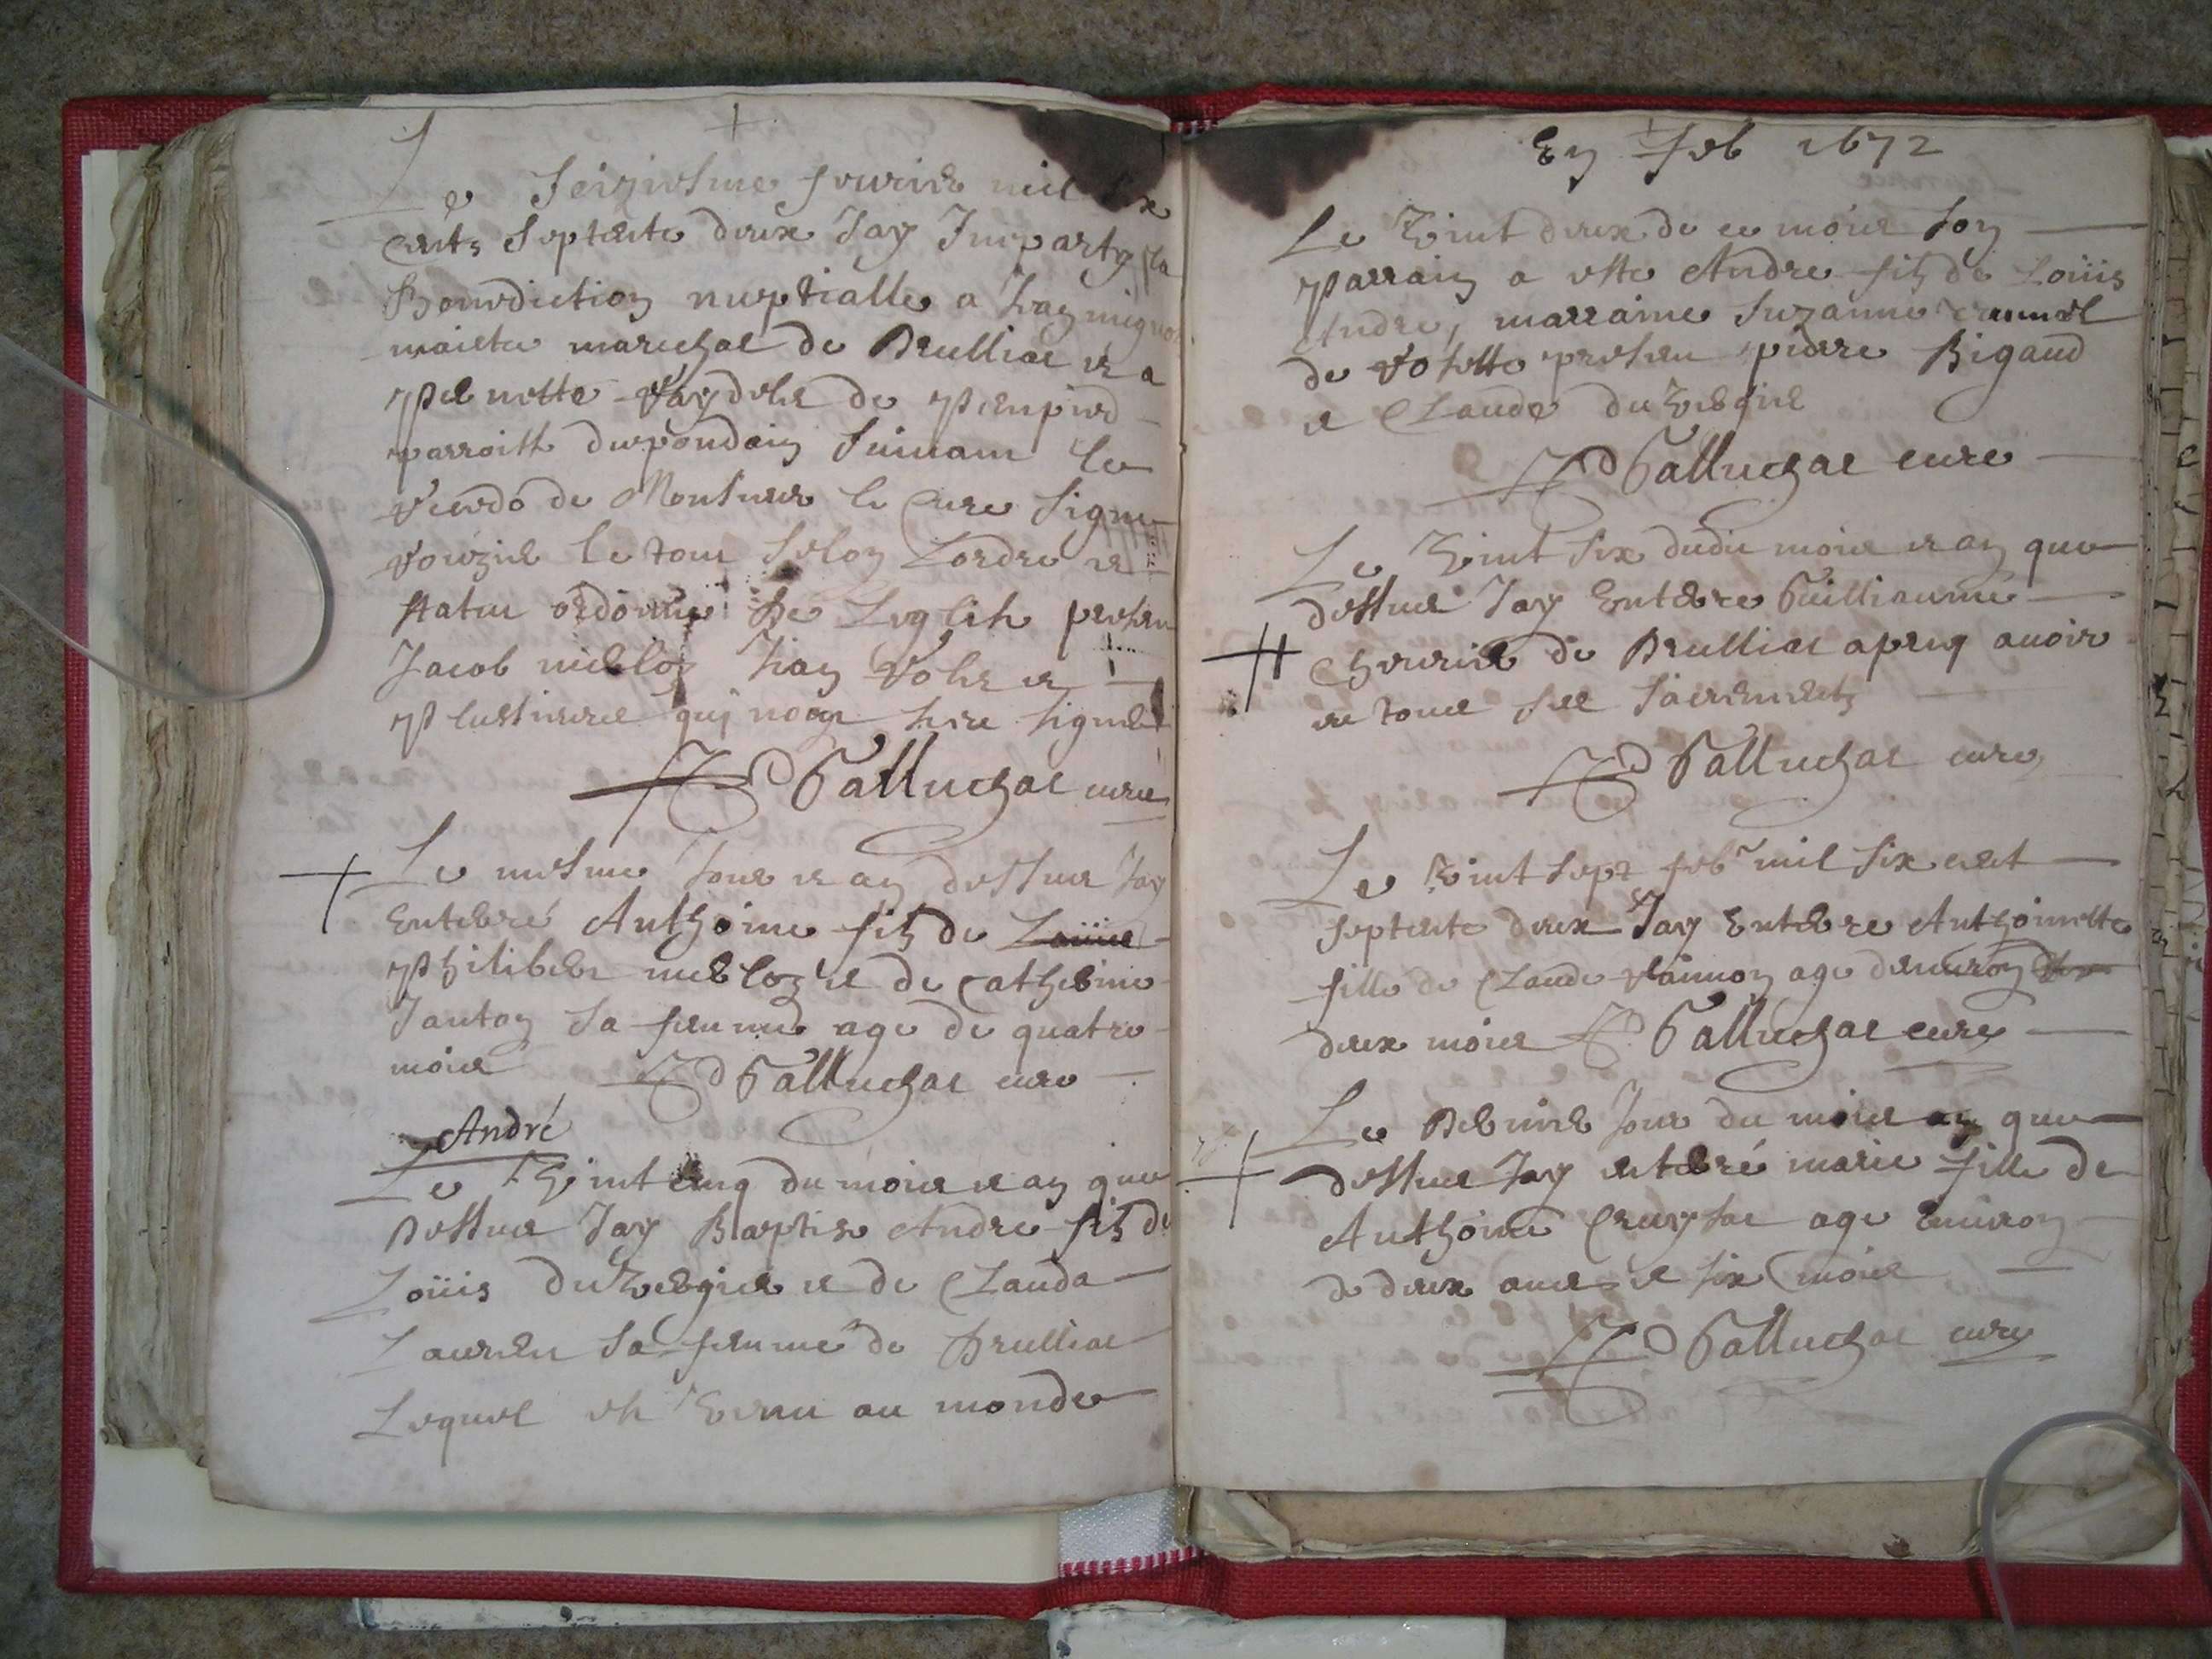 Le seiziesme feurier mil six
cents septente deux Jay Imparty la
Benediction nuptialle a
maistre mareschal de Brullioc et a
Pernette de
parroisse du pondain suiuant le
de Monsieur le Cure signe
le tout selon Lordre et
statut ordonne de Leglise present
Jacob et
Plusieurs qui nont sceu signer
Galluchat cure
Le mesme Jour et an dessus Jay
Enterré Anthoine filz de
Philibert et de Catherine
Janton sa femme age de quatre
mois Galluchat cure
André
Le Vint cinq du mois et an que
Dessus Jay Baptise Andre filz de
Loüis duVergier et de Clauda
Laurent sa femme de
Lequel est Venu au monde
En Feb 1672
Le Vint deux de ce mois son
Parrain a este Andre filz de Loüis
Andre, marraine Suzanne
de present pierre Rigaud
et Claude duVergier
Galluchat cure
Le Vint six dudit mois et an que
dessus Jay Enterre Guilliaume
de apres auoir
eu tous ses sacrements
Galluchat cure
Le Vint sept feb mil six cent
septente deux Jay Enterre Anthoinette
fille de Claude age denuiron
deux mois Galluchat cure
Le Dernier Jour du mois an que
dessus Jay enterré marie fille de
Anthoine age Enuiron
de deux ans et six mois
Galluchat cure